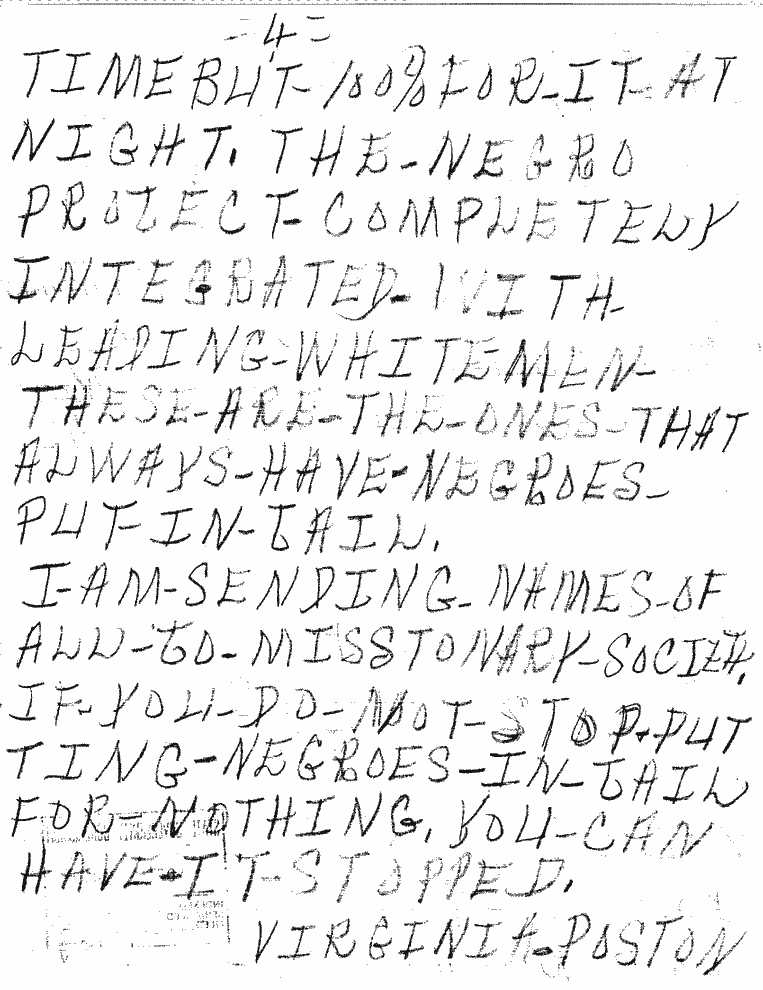 -4-
TIME BUT-100% FOR-IT-AT
NIGHT. THE-NEGRO
PROTECT-COMPLETELY
INTEGRATED-WITH-
LEADING-WHITE MEN-
THESE-ARE-THE-ONES-THAT
ALWAYS-HAVE-NEGROES-
PUT-IN-JAIL.
I-AM-SENDING-NAMES-OF
ALL-TO-MISSTONARY-SOCIETY.
IF-YOU-DO-NOT-STOP-PUT
TING-NEGROES-IN-JAIL
FOR-NOTHING, YOU-CAN
HAVE-IT-STOPPED.
VIRGINIA-POSTON